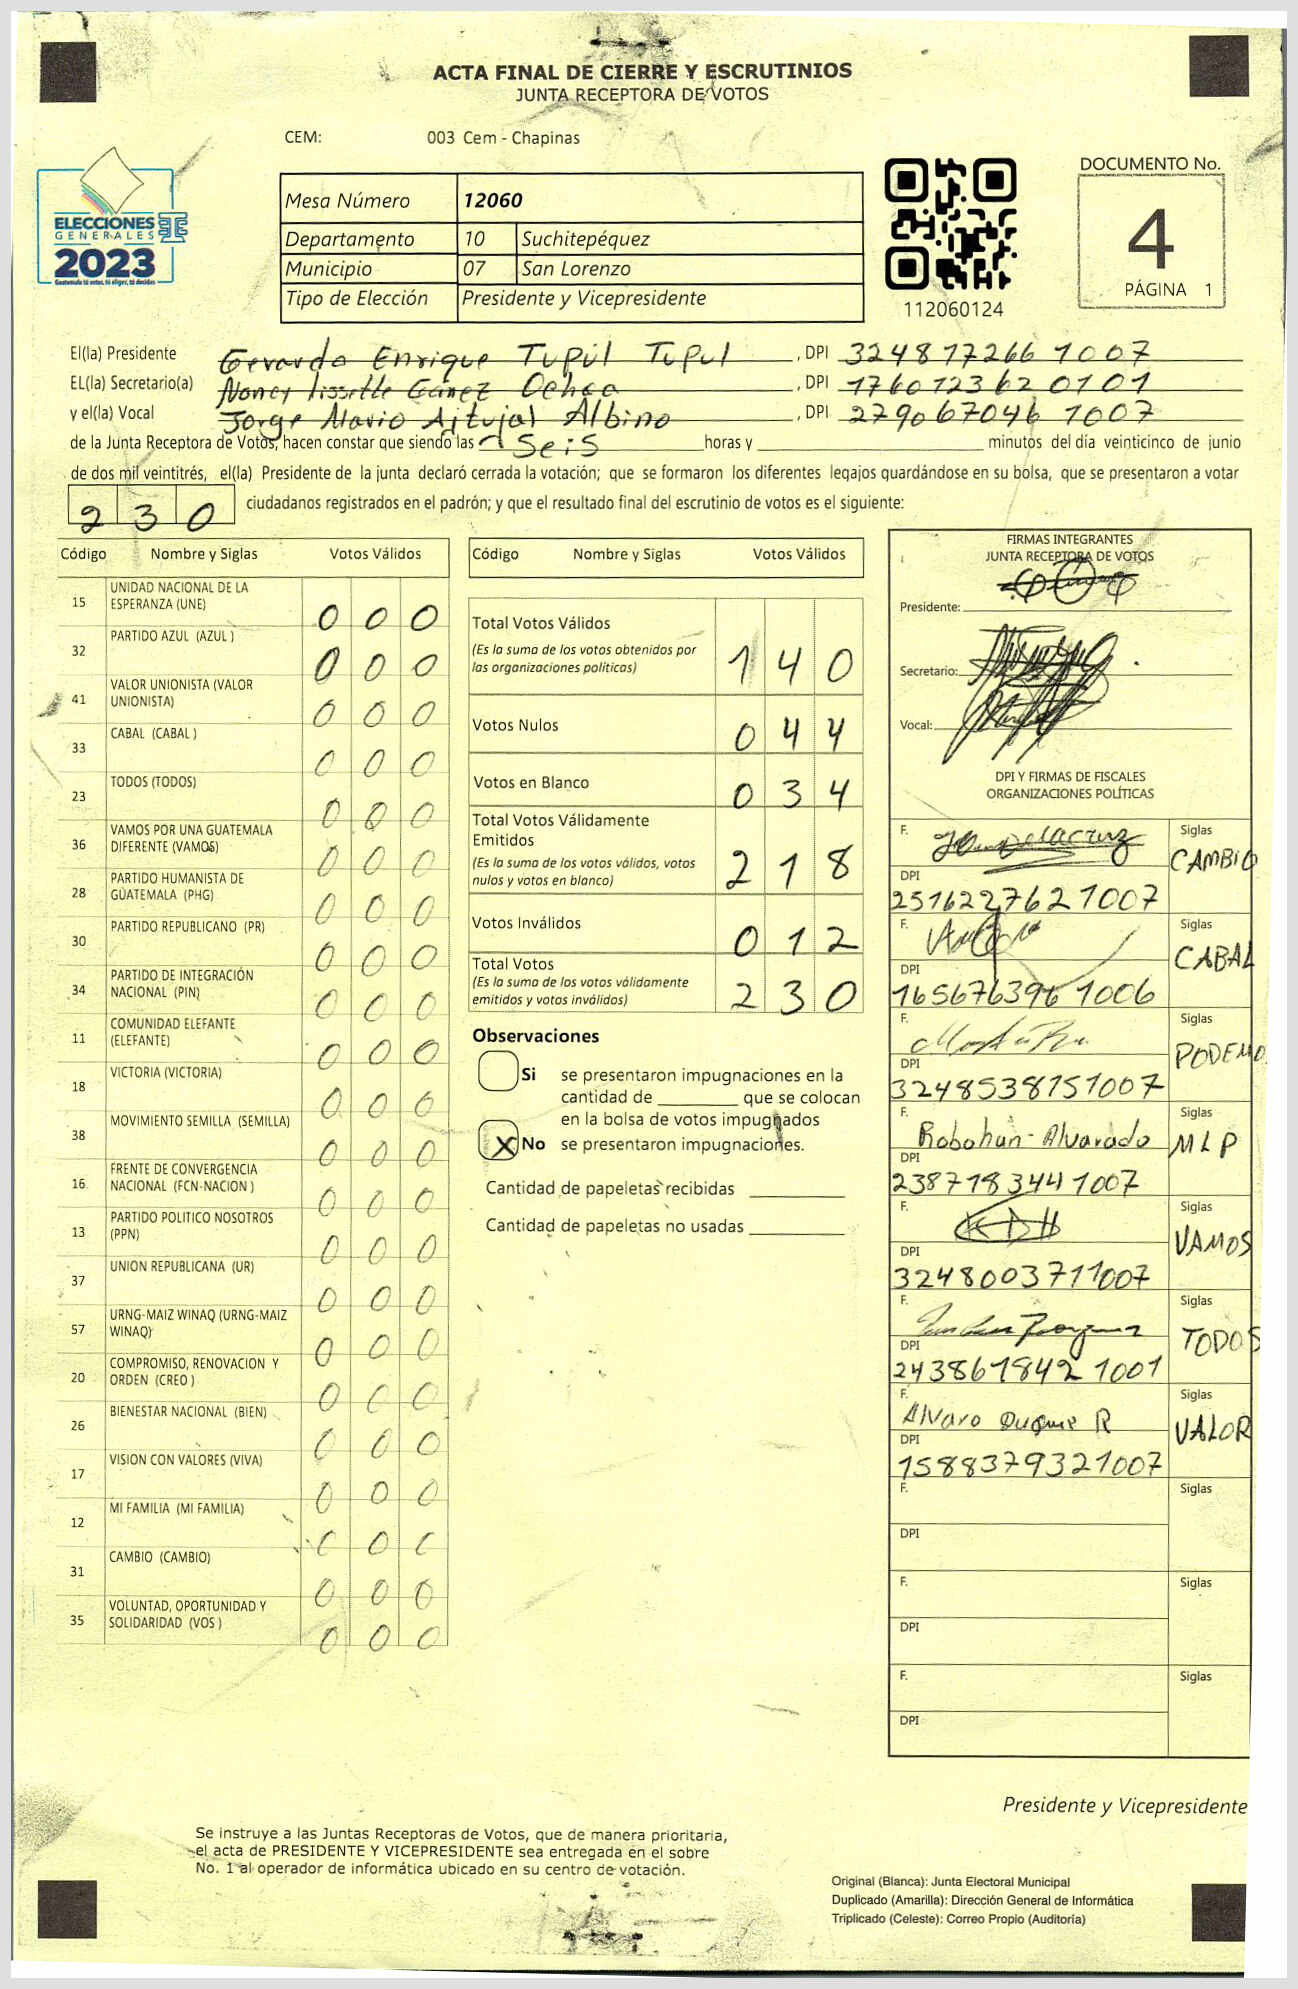 ACTA FINAL DE CIERRE Y ESCRUTINIOS
JUNTA RECEPTORA DE VOTOS
CEM: 003 Cem - Chapinas
ELECCIONES
GENERALES
2023
Guatemala tú votas, tú eliges, tú decides
Mesa Número 12060
Departamento 10 Suchitepéquez
Municipio 07 San Lorenzo
Tipo de Elección Presidente y Vicepresidente
112060124
DOCUMENTO No.
4
PÁGINA 1
El(la) Presidente Gerardo Enrique Tupúl Tupul , DPI 324817266 1007
EL(la) Secretario(a) Nancy Lissette Gámez Ochoa , DPI 1760123620101
y el(la) Vocal Jorge Mavio Ajtujal Albino , DPI 279067046 1007
de la Junta Receptora de Votos, hacen constar que siendo las Seis horas y minutos del día veinticinco de junio
de dos mil veintitrés, el(la) Presidente de la junta declaró cerrada la votación; que se formaron los diferentes legajos guardándose en su bolsa, que se presentaron a votar
230 ciudadanos registrados en el padrón; y que el resultado final del escrutinio de votos es el siguiente:
Código Nombre y Siglas Votos Válidos
15 UNIDAD NACIONAL DE LA ESPERANZA (UNE) 0 0 0
32 PARTIDO AZUL (AZUL ) 0 0 0
41 VALOR UNIONISTA (VALOR UNIONISTA) 0 0 0
33 CABAL (CABAL ) 0 0 0
23 TODOS (TODOS) 0 0 0
36 VAMOS POR UNA GUATEMALA DIFERENTE (VAMOS) 0 0 0
28 PARTIDO HUMANISTA DE GUATEMALA (PHG) 0 0 0
30 PARTIDO REPUBLICANO (PR) 0 0 0
34 PARTIDO DE INTEGRACIÓN NACIONAL (PIN) 0 0 0
11 COMUNIDAD ELEFANTE (ELEFANTE) 0 0 0
18 VICTORIA (VICTORIA) 0 0 0
38 MOVIMIENTO SEMILLA (SEMILLA) 0 0 0
16 FRENTE DE CONVERGENCIA NACIONAL (FCN-NACION ) 0 0 0
13 PARTIDO POLITICO NOSOTROS (PPN) 0 0 0
37 UNION REPUBLICANA (UR) 0 0 0
57 URNG-MAIZ WINAQ (URNG-MAIZ WINAQ) 0 0 0
20 COMPROMISO, RENOVACION Y ORDEN (CREO ) 0 0 0
26 BIENESTAR NACIONAL (BIEN) 0 0 0
17 VISION CON VALORES (VIVA) 0 0 0
12 MI FAMILIA (MI FAMILIA) 0 0 0
31 CAMBIO (CAMBIO) 0 0 0
35 VOLUNTAD, OPORTUNIDAD Y SOLIDARIDAD (VOS ) 0 0 0
Código Nombre y Siglas Votos Válidos
Total Votos Válidos
(Es la suma de los votos obtenidos por
las organizaciones políticas) 1 4 0
Votos Nulos 0 4 4
Votos en Blanco 0 3 4
Total Votos Válidamente
Emitidos
(Es la suma de los votos válidos, votos
nulos y votos en blanco) 2 1 8
Votos Inválidos 0 1 2
Total Votos
(Es la suma de los votos válidamente
emitidos y votos inválidos) 2 3 0
Observaciones
Si se presentaron impugnaciones en la
cantidad de que se colocan
en la bolsa de votos impugnados
X No se presentaron impugnaciones.
Cantidad de papeletas recibidas
Cantidad de papeletas no usadas
FIRMAS INTEGRANTES
JUNTA RECEPTORA DE VOTOS
Presidente:
Secretario:
Vocal:
DPI Y FIRMAS DE FISCALES
ORGANIZACIONES POLÍTICAS
F. Siglas CAMBIO
DPI 251622762 1007
F. Siglas CABAL
DPI 165676396 1006
F. Siglas PODEMO
DPI 3248538151007
F. Robohan - Alvarado Siglas MLP
DPI 238718344 1007
F. Siglas VAMOS
DPI 3248003711007
F. Siglas TODOS
DPI 243861842 1001
F. Alvaro Duque R Siglas VALOR
DPI 1588379321007
F. Siglas
DPI
F. Siglas
DPI
F. Siglas
DPI
Presidente y Vicepresidente
Se instruye a las Juntas Receptoras de Votos, que de manera prioritaria,
el acta de PRESIDENTE Y VICEPRESIDENTE sea entregada en el sobre
No. 1 al operador de informática ubicado en su centro de votación.
Original (Blanca): Junta Electoral Municipal
Duplicado (Amarilla): Dirección General de Informática
Triplicado (Celeste): Correo Propio (Auditoría)